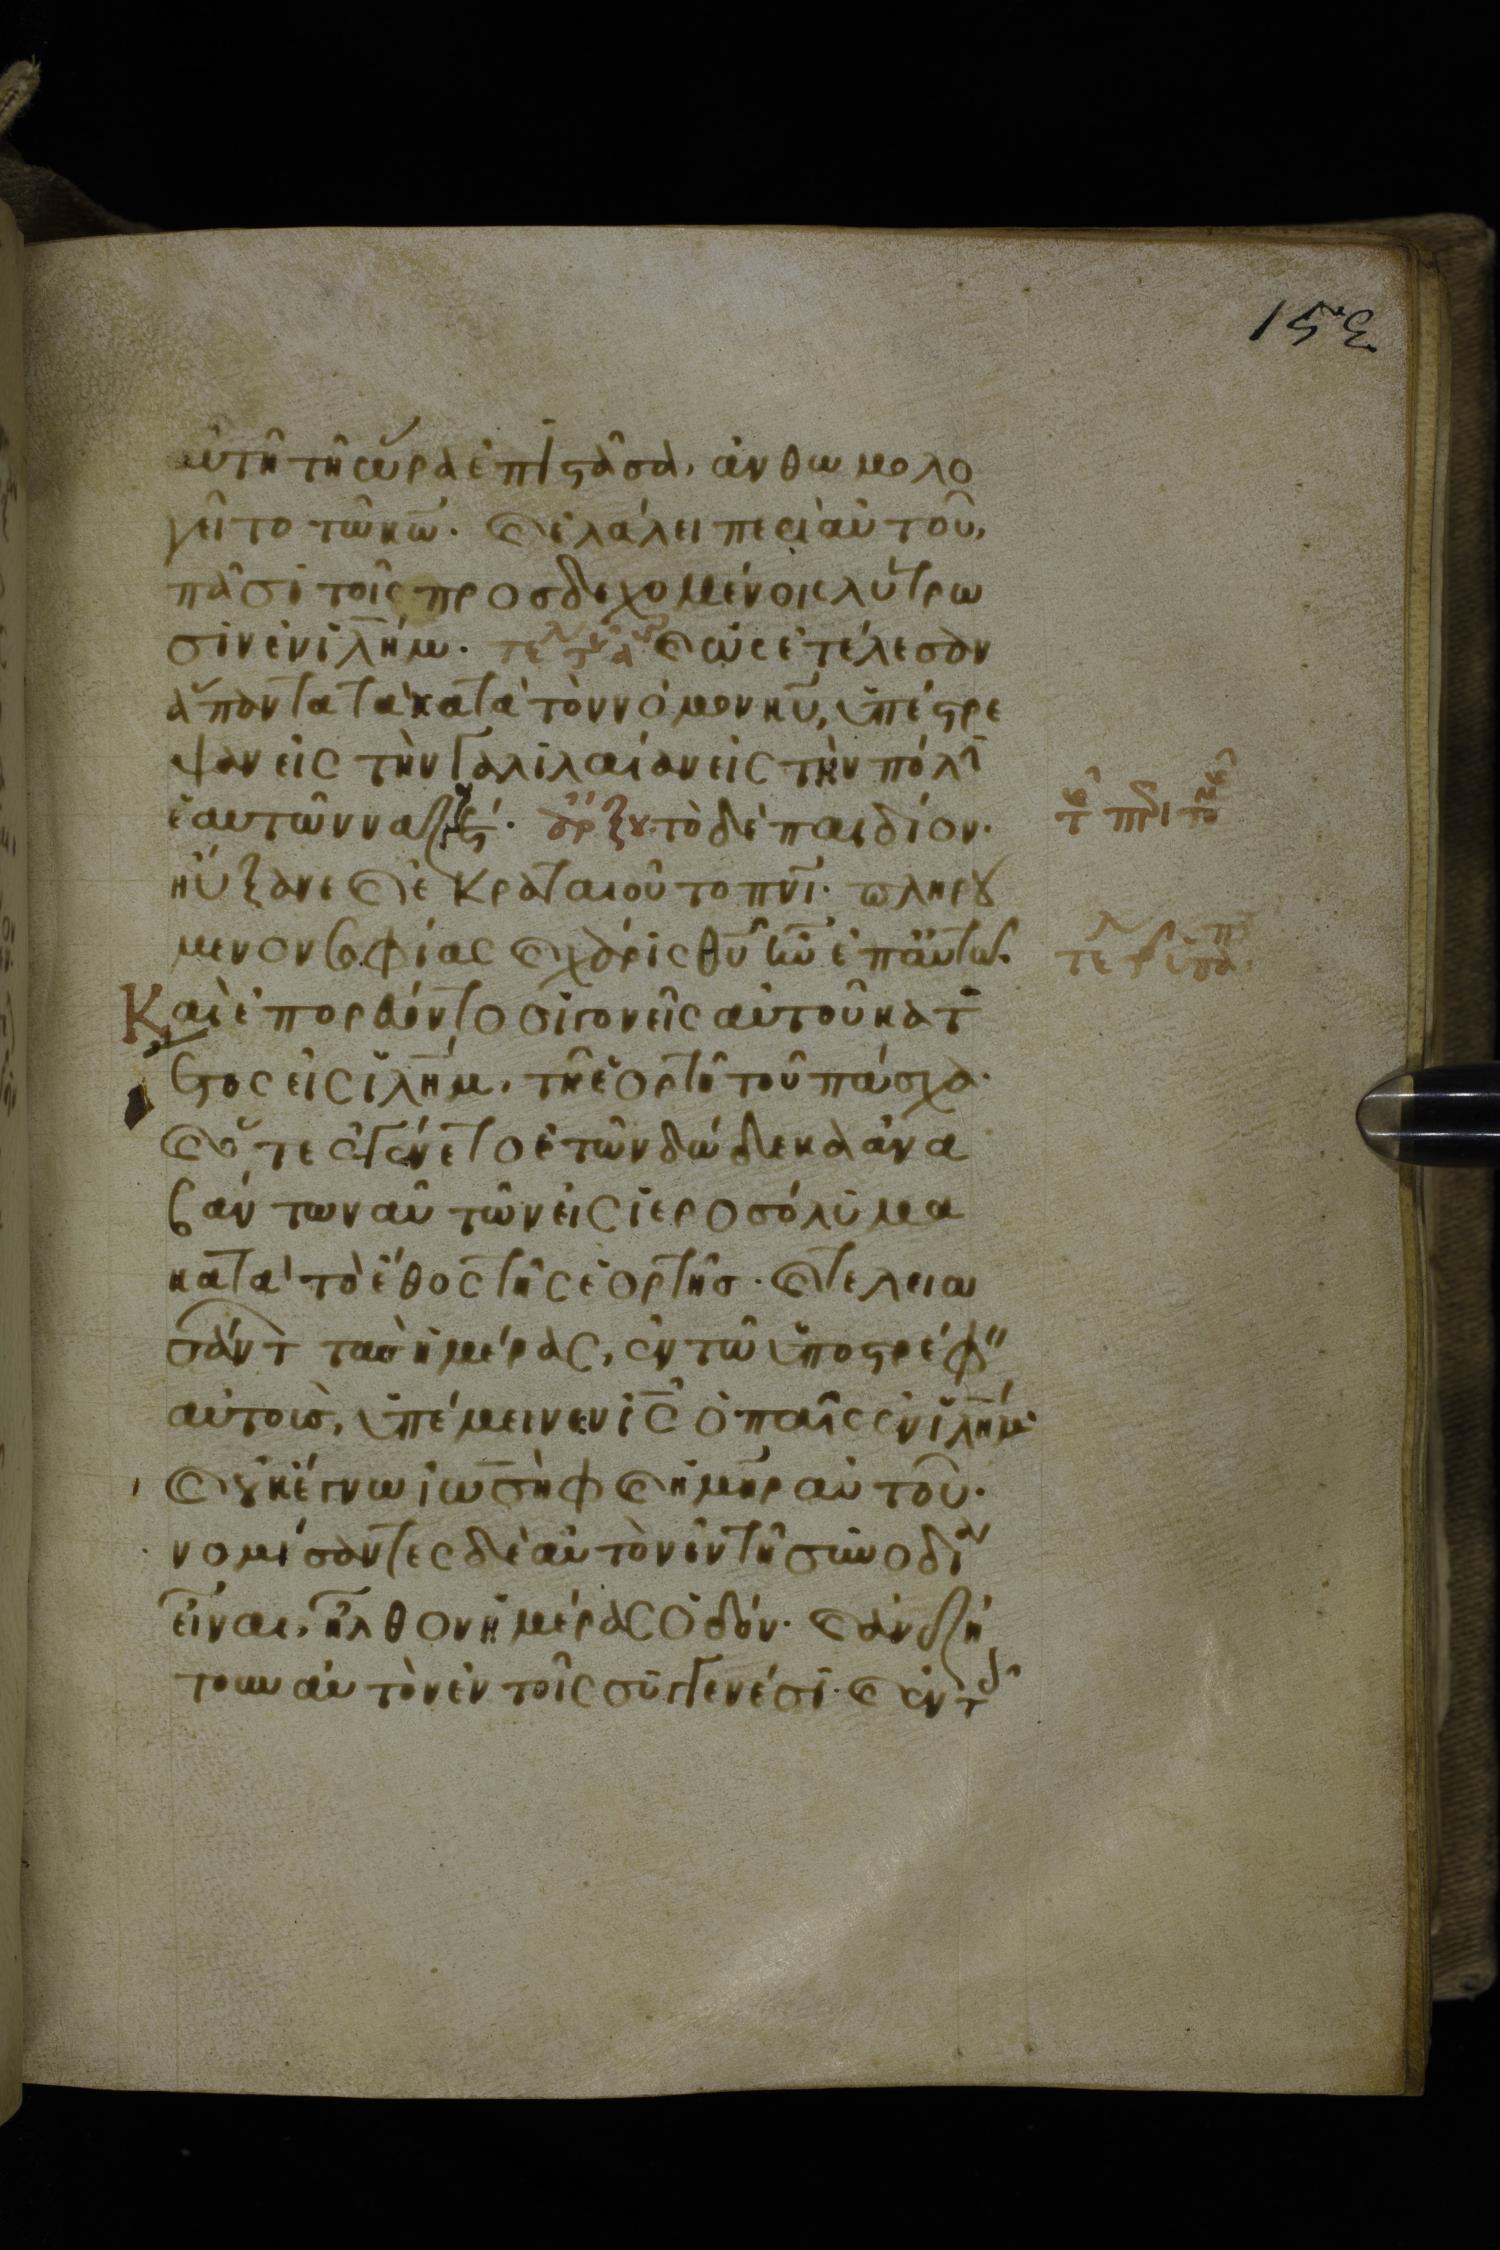 153
αὐτῆ τῆ ὥρα ἐπιστᾶσα, ἀνθωμολο
γεῖτο τῶ κ̅ω̅. καὶ ἐλάλει περὶ αὐτοῦ,
πᾶσι τοῖς προσδεχομένοις λύτρω
σιν ἐν ἰλ̅ή̅μ. καὶ ὡς ἐτέλεσαν
ἅπαντα τὰ κατὰ τὸν νόμον κ̅υ̅, ὑπέστρε
ψαν εἰς τὴν Γαλιλαίαν εἰς τὴν πόλι̅
ἑαυτῶν ναζαρέτ. τὸ δὲ παιδίον
ηὔξανε καὶ ἐκραταιοῦτο π̅ν̅ι̅. πληρού
μενον σοφίας καὶ χάρις θ̅υ̅ ἦν ἐπ αὐτῶ.
Καὶ ἐπορεύοντο οἱ γονεῖς αὐτοῦ κατ
ἔτος εἰς ἰλ̅ή̅μ, τῆ ἑορτῆ τοῦ πάσχα.
καὶ ὅτε ἐγένετο ἐτῶν δώδεκα ἀνα
βάντων αὐτῶν εἰς ἱεροσόλυμα
κατὰ τὸ ἔθος τῆς ἑορτῆς. καὶ τελειω
σάντ τὰς ἡμέρας, ἐν τῶ ὑποστρέφ
αὐτοὺς, ὑπέμεινεν ι̅ς̅ ὁ παῖς ἐν ἰλ̅ή̅μ
καὶ οὐκ ἔγνω ἰωσὴφ καὶ ἡ μ̅η̅ρ αὐτοῦ.
νομίσαντες δὲ αὐτὸν ἐν τῆ συνοδί
εἶναι, ἦλθον ἡμέρας ὁδόν. καὶ ἀνεζή
τουν αὐτὸν ἐν τοῖς συγγενέσι. καὶ ἐν τ